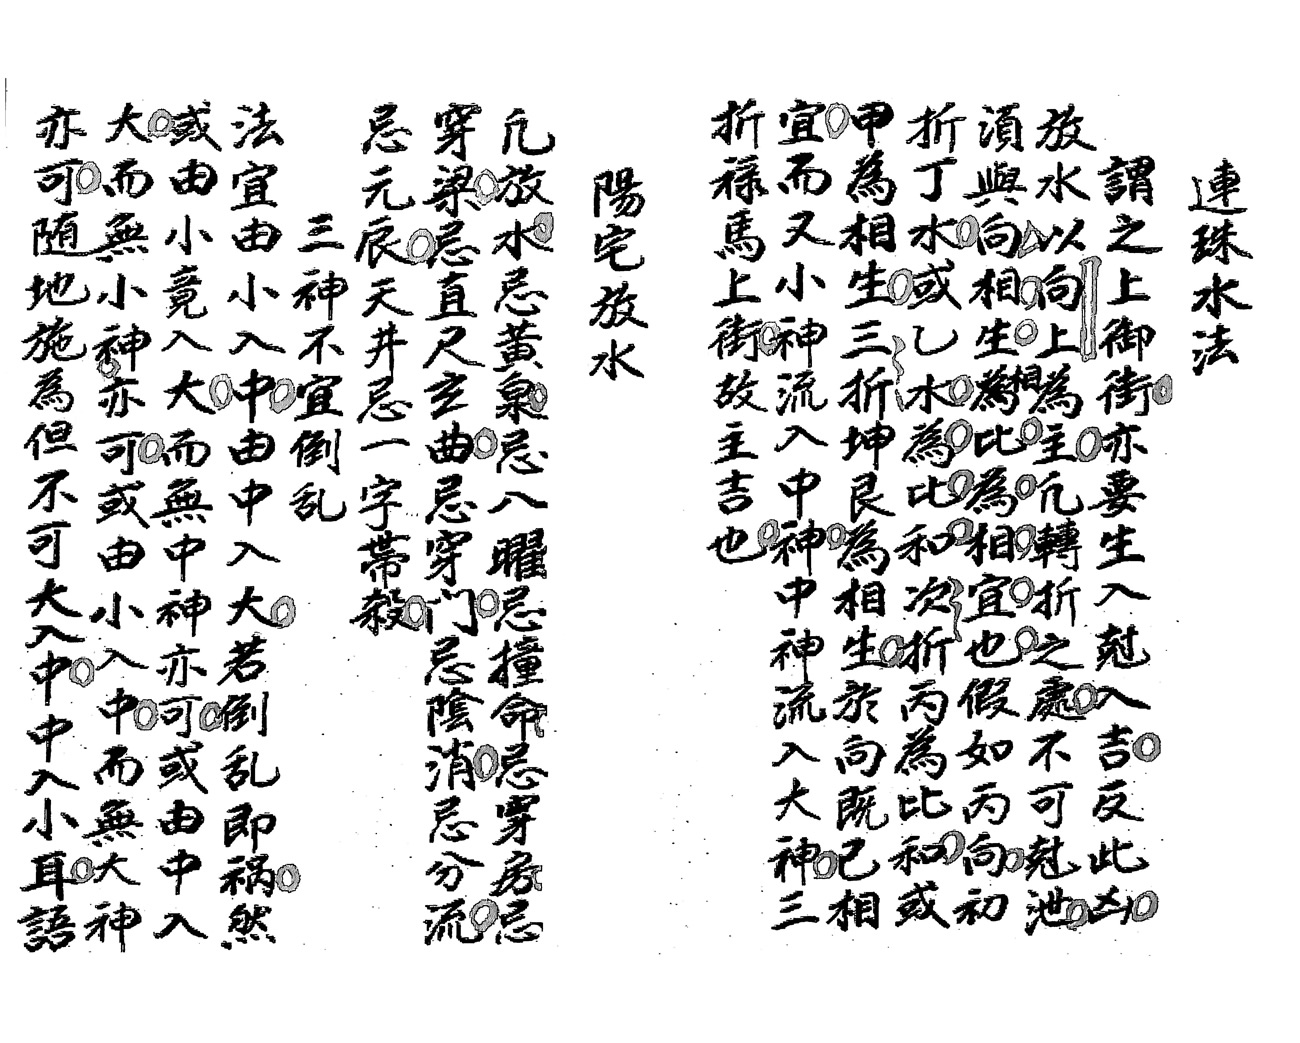 連珠水法
謂之上御街亦要生入尅入吉反此凶
放水以向上為主凢轉折之處不可尅泄
湏與向相生為相比為相宜也假如丙向初
折丁水或乙水為比和次折丙為比和或
甲為相生三折坤艮為相生於向既已相
宜而又小神流入中神中神流入大神三
折祿馬上街故主吉也
陽宅放水
凢放水忌黃泉忌八曜忌撞命忌穿房忌
穿梁忌直尺玄曲忌穿门忌陰消忌分流
忌元辰天井忌一字帶殺
三神不宜倒乱
法宜由小入中由中入大若倒乱即禍然
或由小竟入大而無中神亦可或由中入
大而無小神亦可或由小入中而無大神
亦可随地施為但不可大入中中入小耳語